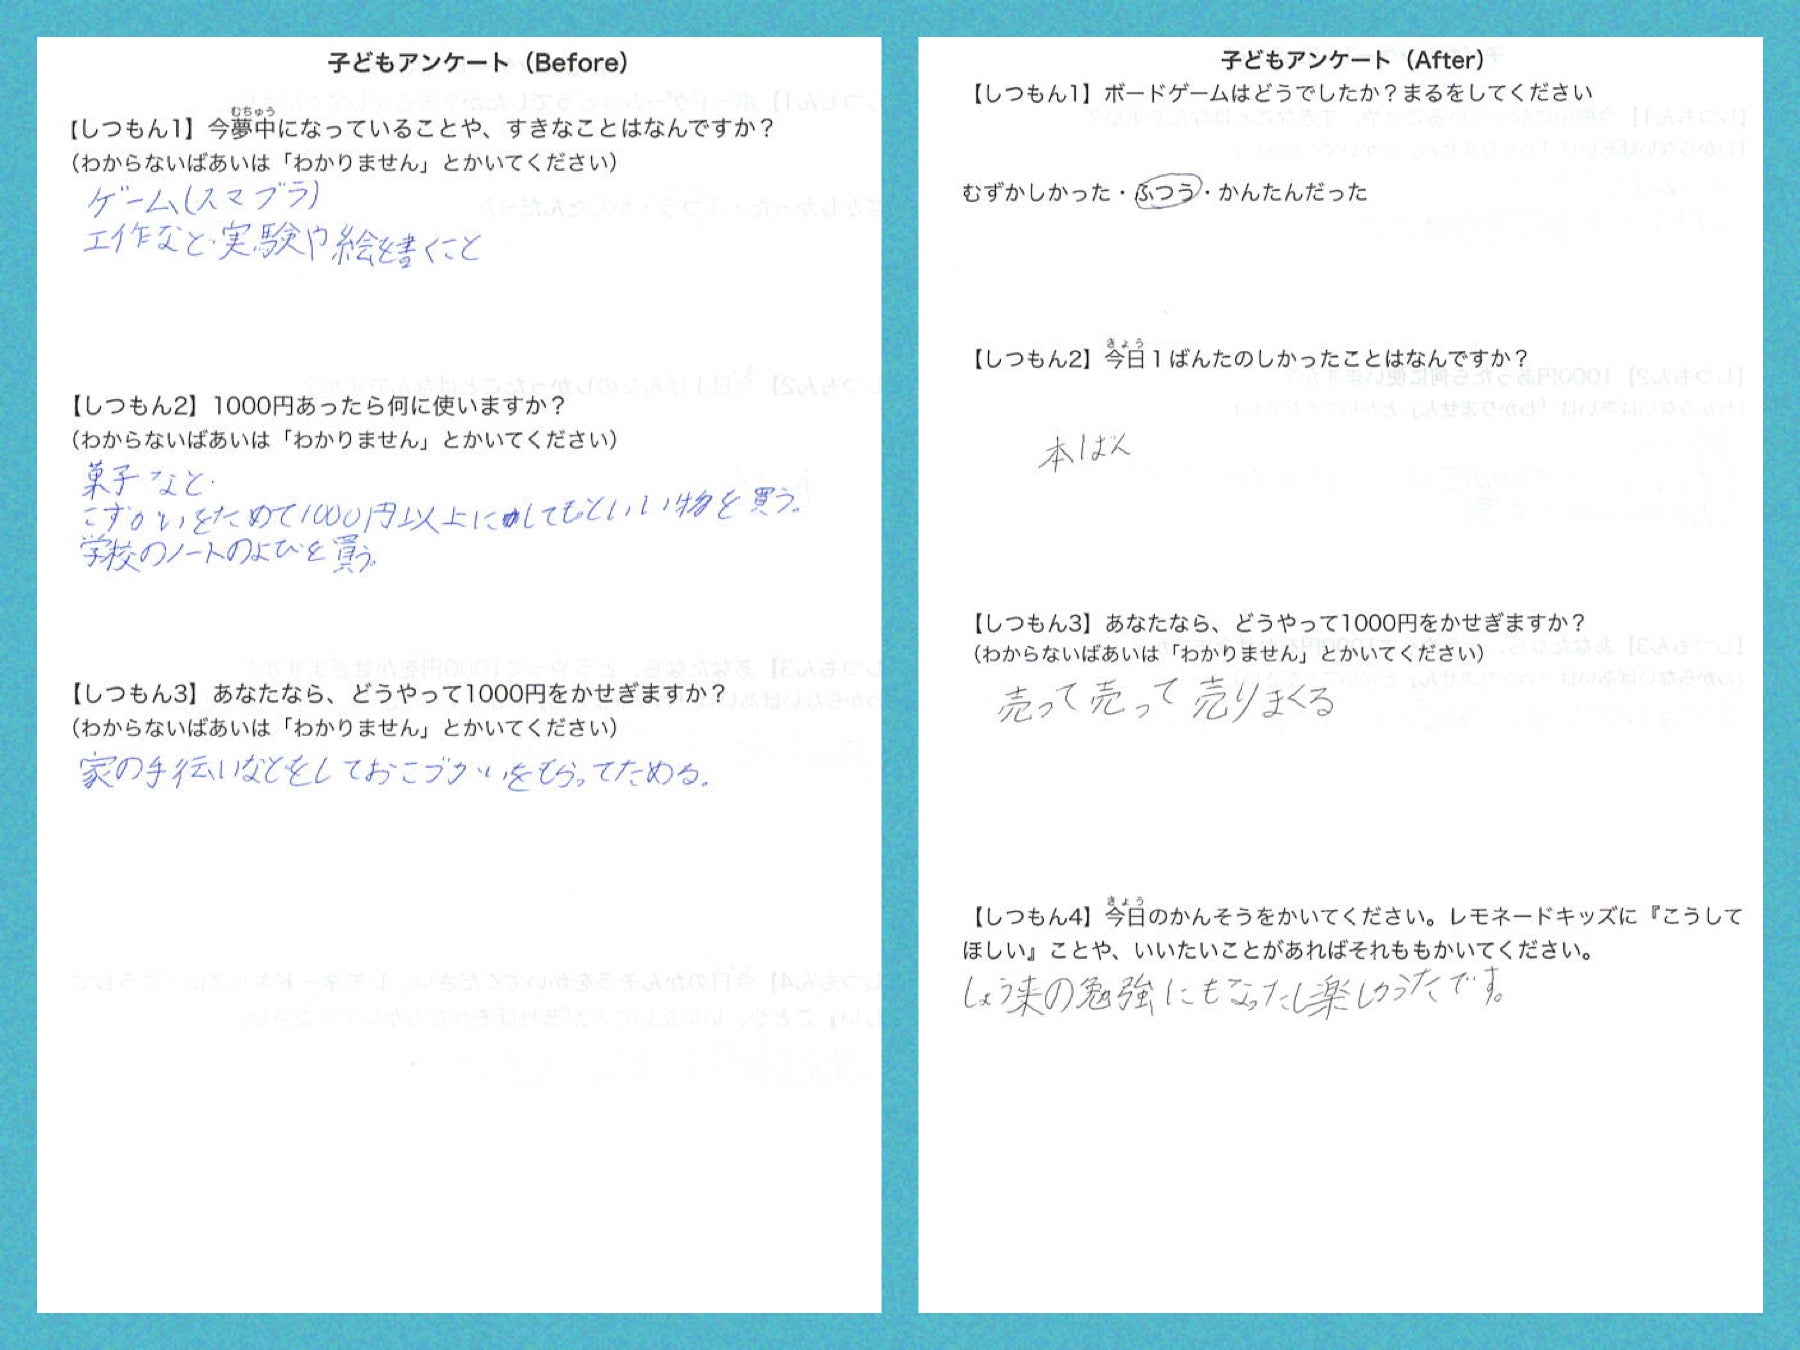 子どもアンケート（Before）
むちゅう
【しつもん1】今夢中になっていることや、すきなことはなんですか？
（わからないばあいは「わかりません」とかいてください）
ゲーム(スマブラ)
工作など・実験や絵を書くこと
【しつもん2】1000円あったら何に使いますか？
（わからないばあいは「わかりません」とかいてください）
菓子など・
こずかいをためて1000円以上にしてもといい物を買う。
学校のノートのよびを買う。
【しつもん3】あなたなら、どうやって1000円をかせぎますか？
（わからないばあいは「わかりません」とかいてください）
家の手伝いなどをしておこづかいをもらってためる.
子どもアンケート（After）
【しつもん1】ボードゲームはどうでしたか？まるをしてください
むずかしかった・ふつう・かんたんだった
きょう
【しつもん2】今日１ばんたのしかったことはなんですか？
本ばん
【しつもん3】あなたなら、どうやって1000円をかせぎますか？
（わからないばあいは「わかりません」とかいてください）
売って売って売りまくる
きょう
【しつもん4】今日のかんそうをかいてください。レモネードキッズに『こうして
ほしい』ことや、いいたいことがあればそれももかいてください。
しょう来の勉強にもなったし楽しかうたです。